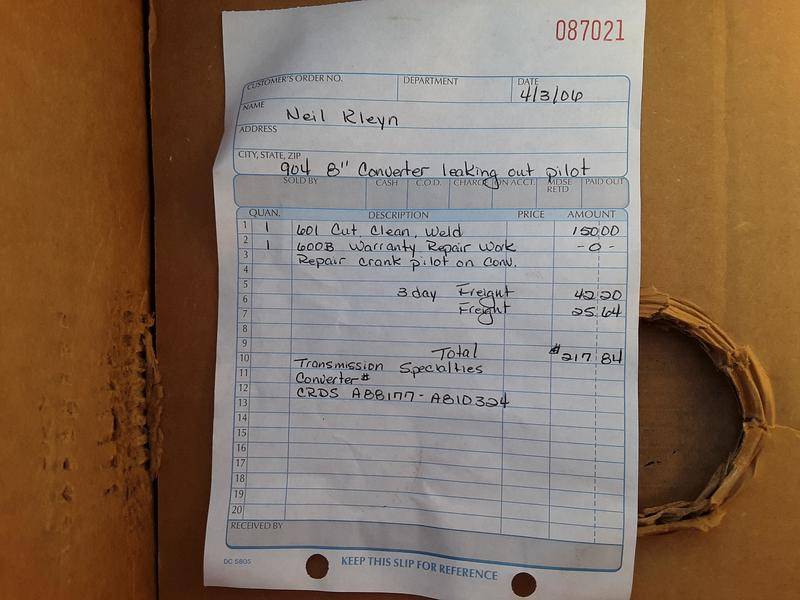 087021
CUSTOMER'S ORDER NO. DEPARTMENT DATE 4/3/06
NAME Neil Kleyn
ADDRESS
CITY, STATE, ZIP
904 8" Converter leaking out pilot
SOLD BY CASH C.O.D. CHARGE ON ACCT. MDSE RETD PAID OUT
QUAN. DESCRIPTION PRICE AMOUNT
1 1 601 Cut, Clean, Weld 150 00
2 1 600B Warranty Repair Work - 0 -
3 Repair crank pilot on Conv.
4
5
6 3 day Freight 42 20
7 Freight 25 64
8
9
10 Total #217 84
11 Transmission Specialties
12 Converter #
13 CRDS A88177 - A810324
14
15
16
17
18
19
20
RECEIVED BY
DC 5805 KEEP THIS SLIP FOR REFERENCE